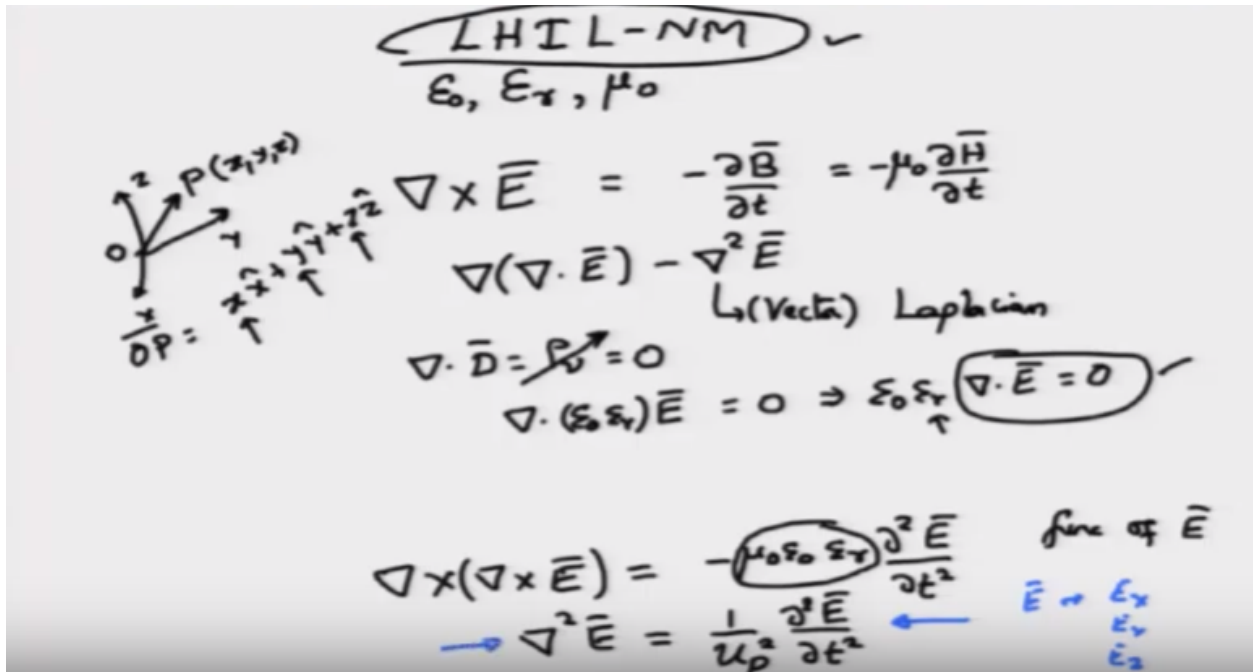 LHIL-NM ✓
ε₀, εᵣ, μ₀
z P(x,y,z)
O y
x
O̅P̅ = x x̂ + y ŷ + z ẑ
∇ × E̅ = -∂B̅/∂t = -μ₀ ∂H̅/∂t
∇(∇·E̅) - ∇²E̅
↳(Vector) Laplacian
∇·D̅ = ρᵥ = 0
∇·(ε₀εᵣ)E̅ = 0 ⇒ ε₀εᵣ ∇·E̅ = 0 ✓
∇×(∇×E̅) = -μ₀ε₀εᵣ ∂²E̅/∂t² func of E̅
→ ∇²E̅ = 1/uₚ² ∂²E̅/∂t² ← E̅ → Eₓ
Eᵧ
E_z